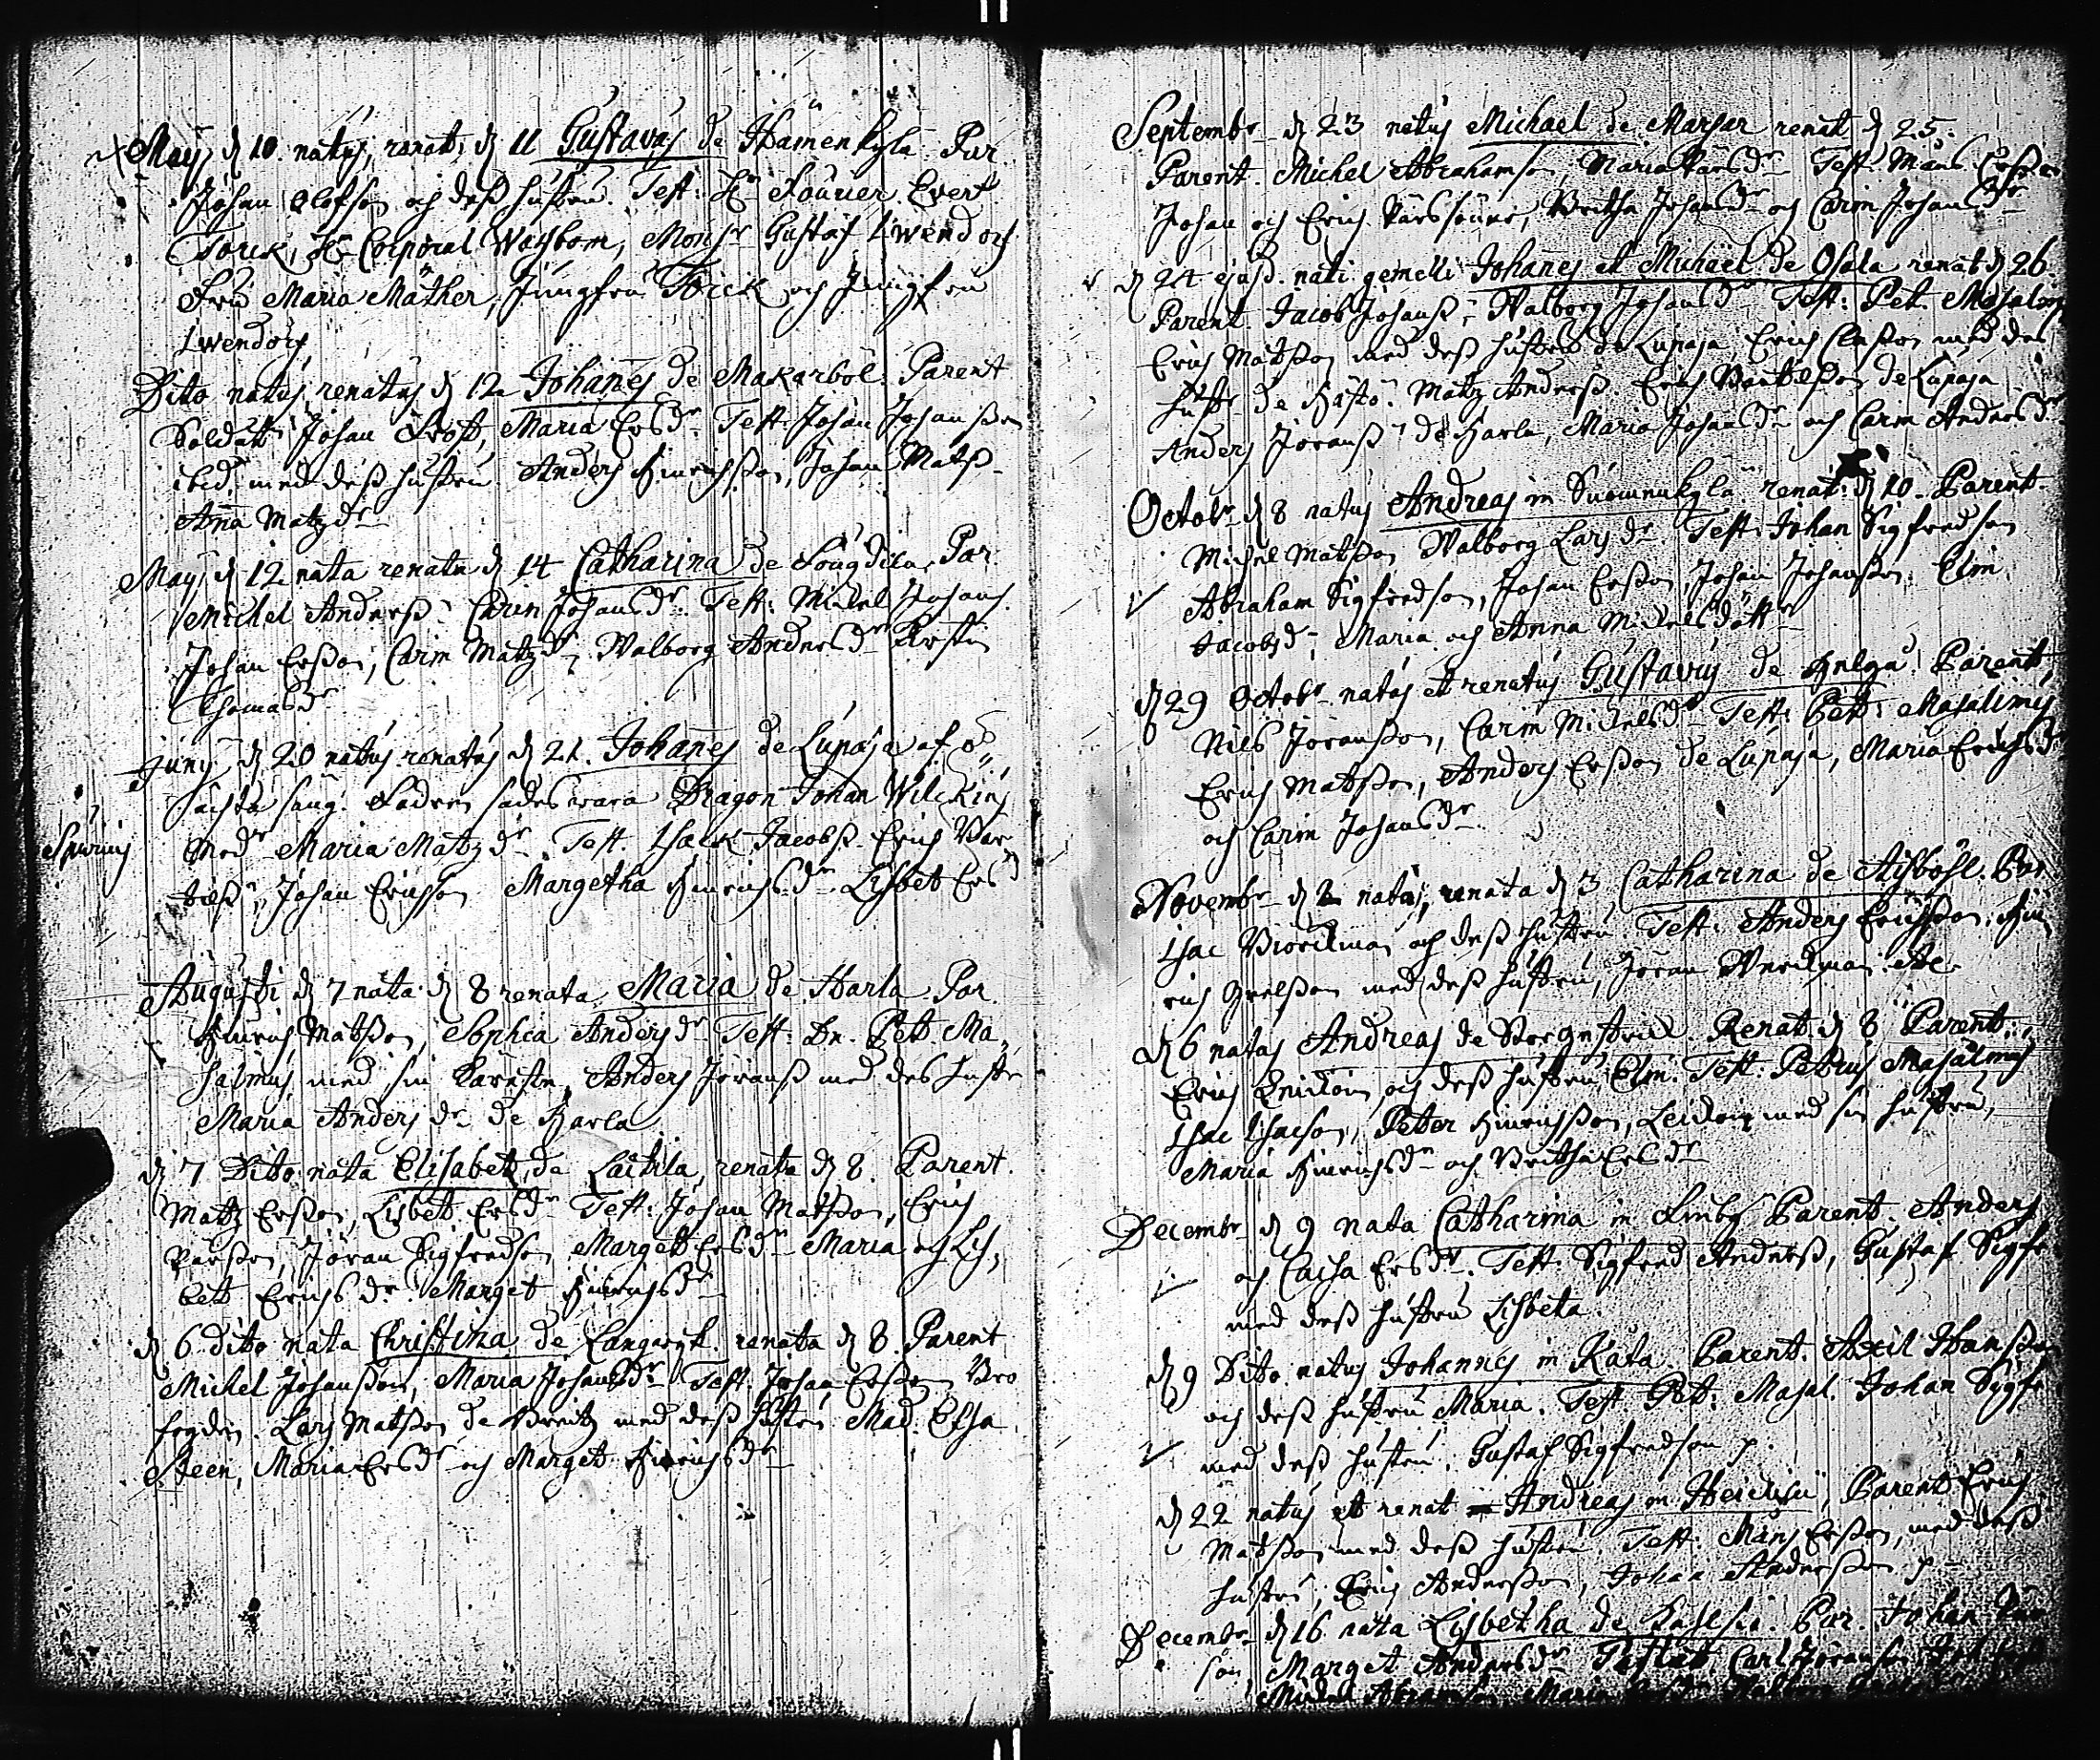 Maij d 10. natus, renat. d 11 Gustavus de Hämenkylä Par.
Johan Olofson och dess hustru. Test: Hr Fourier Evert
Torck, Hr Corporal Waijbom, Monsr Gustaf Lwendorf
Fru Maria Mäther, Jungfru Torck och Jungfru
Lwendorf
Dito natus renatus d 12 Johañes de Makarböl. Parent
Soldatt Johan Frost, Maria Ersdr. Test. Johan Johansson
ibid. med dess hustru. Anders Hinrichsson, Johan Matss.
Aña Matzdr
Maij d 12 nata renata d 14 Catharina de Par.
Michel Anderss. Carin Johansdr. Test: Michel Johans.
Johan Ersson, Carin Matzdr, Walborg Andersdr Kirstin
Thomasdr
Junij d 20 natus renatus d 21. Johañes de Lupaja af o
säng. Fadren sades wara Dragon Johan Wilckins
Spurius
Modr Maria Matzdr. Test. Isack Jacobss. Erich Bar
tilss, Johan Erichsson Margetha Hinrichsdr Lisbet Ersd
Augusti d 7 nata d 8 renata Maria de Harla Par.
Hinrich Matsson, Sophia Andersdr Test: Dn. Pet. Ma,
salinus med sin Käresta, Anders Jöranss med des hustr
Maria Andersdr de Harla
d 7 Dito nata Elisabetz de Laitila, renata d 8. Parent.
Matz Ersson, Lisbet Ersdr Test: Johan Matsson, Erich
Pärsson, Jöran Sigfredson Marget Ersdr Maria och Lis,
bett Erichsdr Marget Hinrichsdr
d 6 dito nata Christina de Langwyk renata d 8 Parent
Michel Johansson, Maria Johansdr Test. Johan Ersson Bro
fogden. Lars Matsson de med dess hustru Mad. Elsa
Steen, Maria Ersdr och Marget Hinrichsdr
Septembr d 23 natus Michael de Marsar renat d 25.
Parent. Michel Abrahamson, Maria Pärsdr Test. Måns Ersson
Johan och Erich Pärssöner, Britha Johansdr och Carin Johansdr
d 24 ejusd. nati gemelli Johañes et Michael de Osala renat d 26.
Parent. Jacob Johanss, Walborg Johansdr Test: Pet. Masalin
Erich Matsson med dess hustru de Lupaja, Erich Classon med des
hustr de Matz Anderss. Erich Bertilsson de Lupaja
Anders Jöranss de Harla, Maria Johansdr och Carin Andersdr
Octobr d 8 natus Andreas in Suomenkylä renat: d 10. Parent
Michel Matsson Walborg Larsdr Test: Johan Sigfredson
Abraham Sigfredson, Johan Ersson, Johan Johansson. Elin
Jacobsd, Maria och Anna Michelsdottr
d 29 Octobr natus et renatus Gustavus de Helgå. Parent
Nils Jöransson, Carin Michelsdr Test: Pett: Masalinus
Erich Matsson, Anders Ersson de Lupaja, Maria Erichsdr
och Carin Johansdr
Novembr d 2 nata, renata d 3 Catharina de Par
Isac Biörckman och dess hustru. Test: Anders Erichsson Hin
rich med dess hustru, Jöran
d 6 natus Andreas de Renat. d 8 Parent.
Erich och dess hustru Elin. Test: Petrus Masalinus
Isac Isacson, Peter Hinrichsson, med sin hustru,
Maria Hinrichsdr och Britha Ersdr
Decembr d 9 nata Catharina in Parent Anders
och Caisa Ersdr. Test: Sigfred Anderss, Gustaf Sigfr
med dess hustru Lisbeta.
d 9 Dito natus Johannes in Kata. Parent. Axil Hansson
och dess hustru Maria. Test. Pet: Masal. Johan Sigfr
med dess hustru. Gustaf Sigfredson p.
d 22 natus et renat Andreas in Parent Erich
Matsson med dess hustru Test: Måns Ersson, med dess
hustru, Erich Andersson, Johan Andersson p
Decembr d 16 nata Lisbetha de Par. Johan
son, Marget Andersdr Test: Carl Jöranson
Michel Maria